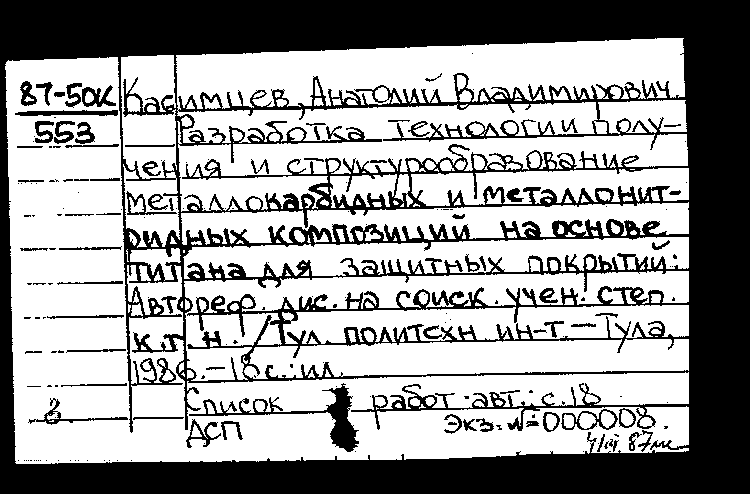 87-50К Касимцев, Анатолий Владимирович.
553 Разработка технологии полу-
чения и структурообразование
металлокарбидных и металлонит-
ридных композиций на основе
титана для защитных покрытий:
Автореф. дис. на соиск. учен. степ.
к.т.н. / Тул. политехн ин-т. — Тула,
1986. — 18 с.: ил.
Список работ авт.: с. 18
ДСП Экз. № 000008.